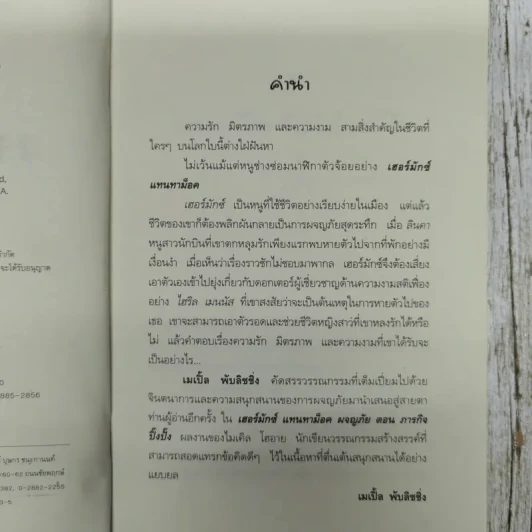 คำนำ
ความรัก มิตรภาพ และความงาม สามสิ่งสำคัญในชีวิตที่
ใครๆ บนโลกใบนี้ต่างใฝ่ฝันหา
ไม่เว้นแม้แต่หนูช่างซ่อมนาฬิกาตัวจ้อยอย่าง เฮอร์มักซ์
แทนทาม็อค
เฮอร์มักซ์ เป็นหนูที่ใช้ชีวิตอย่างเรียบง่ายในเมือง แต่แล้ว
ชีวิตของเขาก็ต้องพลิกผันกลายเป็นการผจญภัยสุดระทึก เมื่อ ลินคา
หนูสาวนักบินที่เขาตกหลุมรักเพียงแรกพบหายตัวไปจากที่พักอย่างมี
เงื่อนงำ เมื่อเห็นว่าเรื่องราวชักไม่ชอบมาพากล เฮอร์มักซ์จึงต้องเสี่ยง
เอาตัวเองเข้าไปยุ่งเกี่ยวกับดอกเตอร์ผู้เชี่ยวชาญด้านความงามสติเฟื่อง
อย่าง ไฮริล เมนนัส ที่เขาสงสัยว่าจะเป็นต้นเหตุในการหายตัวไปของ
เธอ เขาจะสามารถเอาตัวรอดและช่วยชีวิตหญิงสาวที่เขาหลงรักได้หรือ
ไม่ แล้วคำตอบเรื่องความรัก มิตรภาพ และความงามที่เขาได้รับจะ
เป็นอย่างไร...
เมเปิ้ล พับลิชชิ่ง คัดสรรวรรณกรรมที่เต็มเปี่ยมไปด้วย
จินตนาการและความสนุกสนานของการผจญภัยมานำเสนอสู่สายตา
ท่านผู้อ่านอีกครั้ง ใน เฮอร์มักซ์ แทนทาม็อค ผจญภัย ตอน ภารกิจ
ปิ๊งปั๊ง ผลงานของไมเคิล โฮอาย นักเขียนวรรณกรรมสร้างสรรค์ที่
สามารถสอดแทรกข้อคิดดีๆ ไว้ในเนื้อหาที่ตื่นเต้นสนุกสนานได้อย่าง
แยบยล
เมเปิ้ล พับลิชชิ่ง